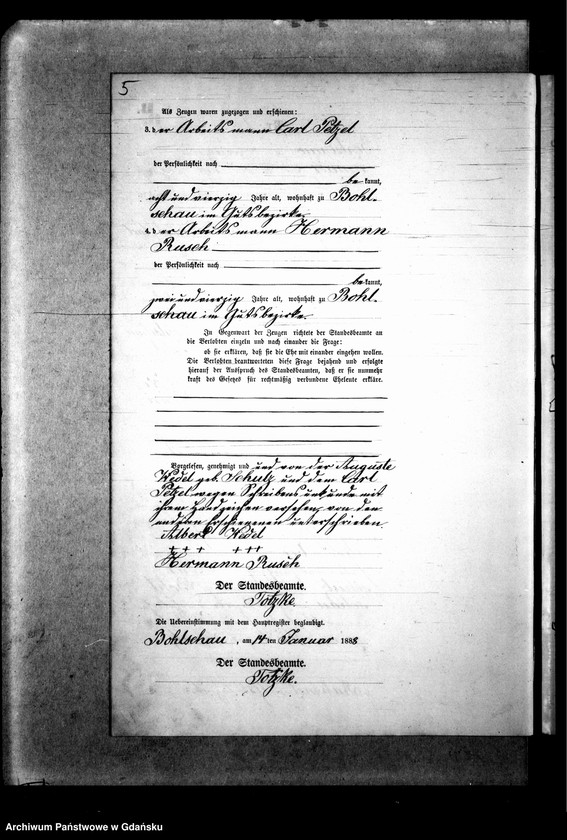 5
Als Zeugen waren zugezogen und erschienen:
3. der Arbeitsmann Carl Petzel
der Persönlichkeit nach
bekannt,
acht und vierzig Jahre alt, wohnhaft zu Bohl-
schau im Gutsbezirke
4. der Arbeitsmann Hermann
Rusch
der Persönlichkeit nach
bekannt,
zwei und vierzig Jahre alt, wohnhaft zu Bohl-
schau im Gutsbezirke
In Gegenwart der Zeugen richtete der Standesbeamte an
die Verlobten einzeln und nach einander die Frage:
ob sie erklären, daß sie die Ehe mit einander eingehen wollen.
Die Verlobten beantworteten diese Frage bejahend und erfolgte
hierauf der Ausspruch des Standesbeamten, daß er sie nunmehr
kraft des Gesetzes für rechtmäßig verbundene Eheleute erkläre.
Vorgelesen, genehmigt und und von der Auguste
Wedel geb. Schulz und dem Carl
Petzel wegen Schreibensunkunde mit
ihrem Handzeichen versehen, von den
andern Erschienenen unterschrieben
Albert Wedel
+++ +++
Hermann Rusch
Der Standesbeamte.
Totzke.
Die Uebereinstimmung mit dem Hauptregister beglaubigt.
Bohlschau, am 14ten Januar 1888
Der Standesbeamte.
Totzke.
Archiwum Państwowe w Gdańsku